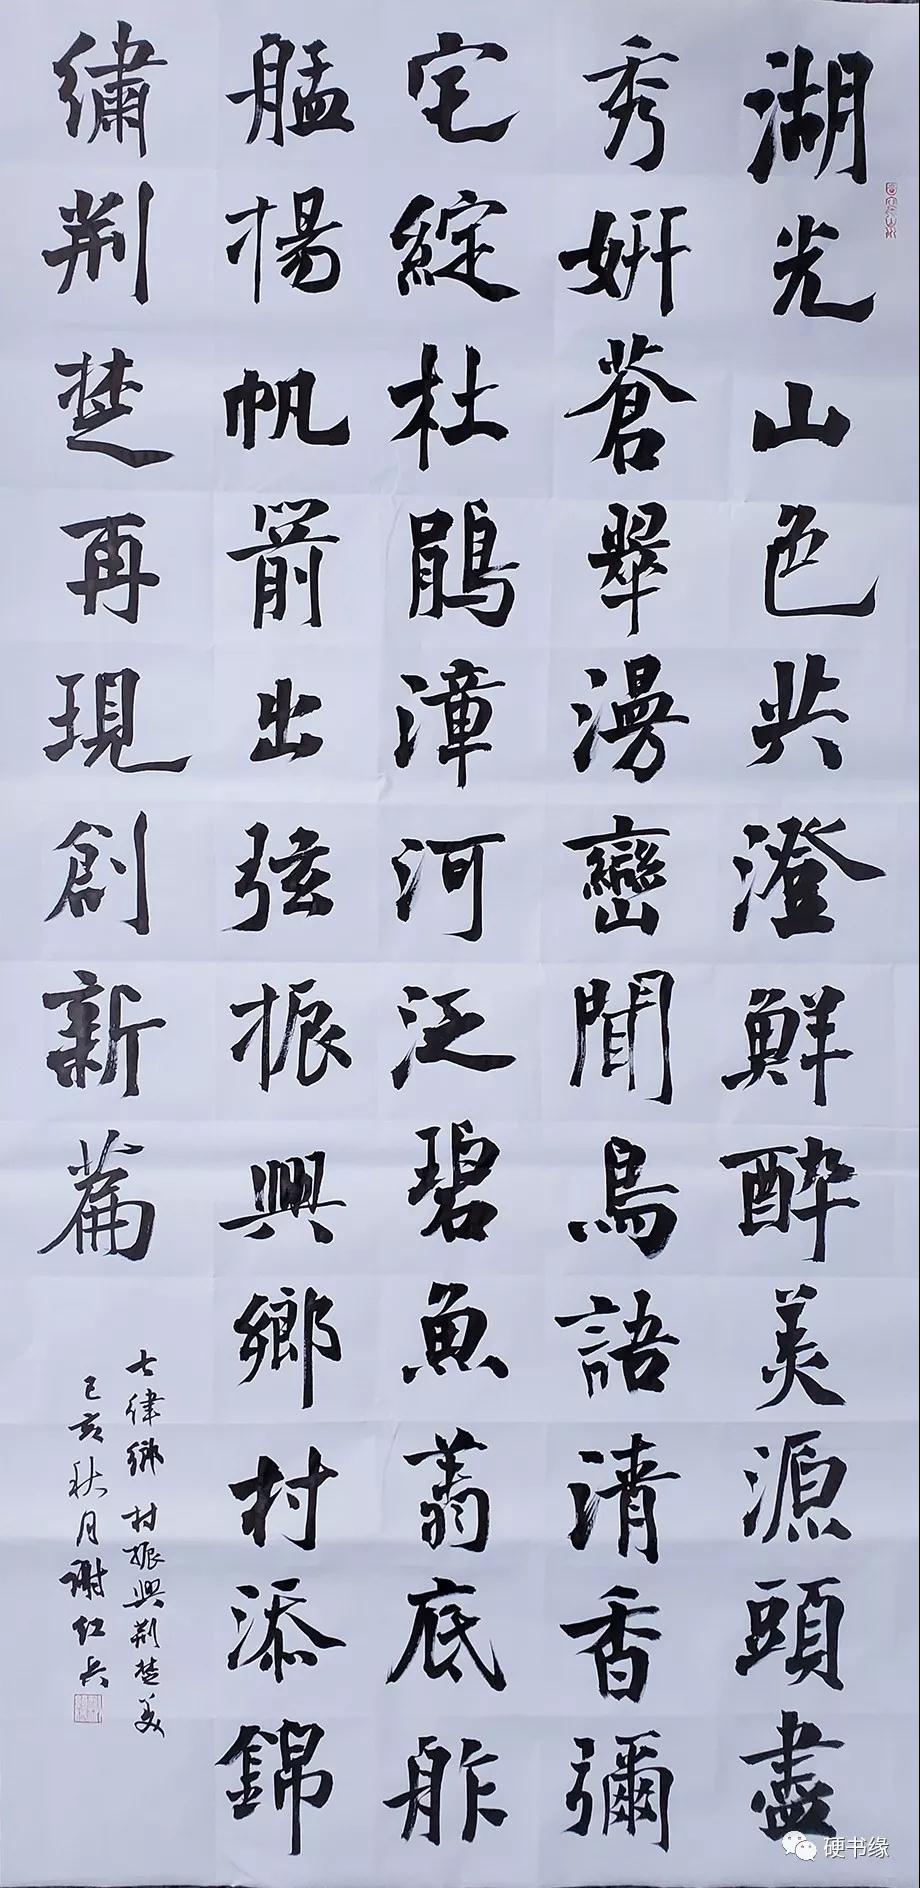 湖光山色共澄鮮醉美源頭盡
秀妍蒼翠漫巒聞鳥語清香彌
宅綻杜鵑漳河泛碧魚翥底舴
艋揚帆箭出弦振興鄉村添錦
繡荊楚再現創新篇
七律鄉村振興荊楚美
己亥秋月謝红兵
硬书缘